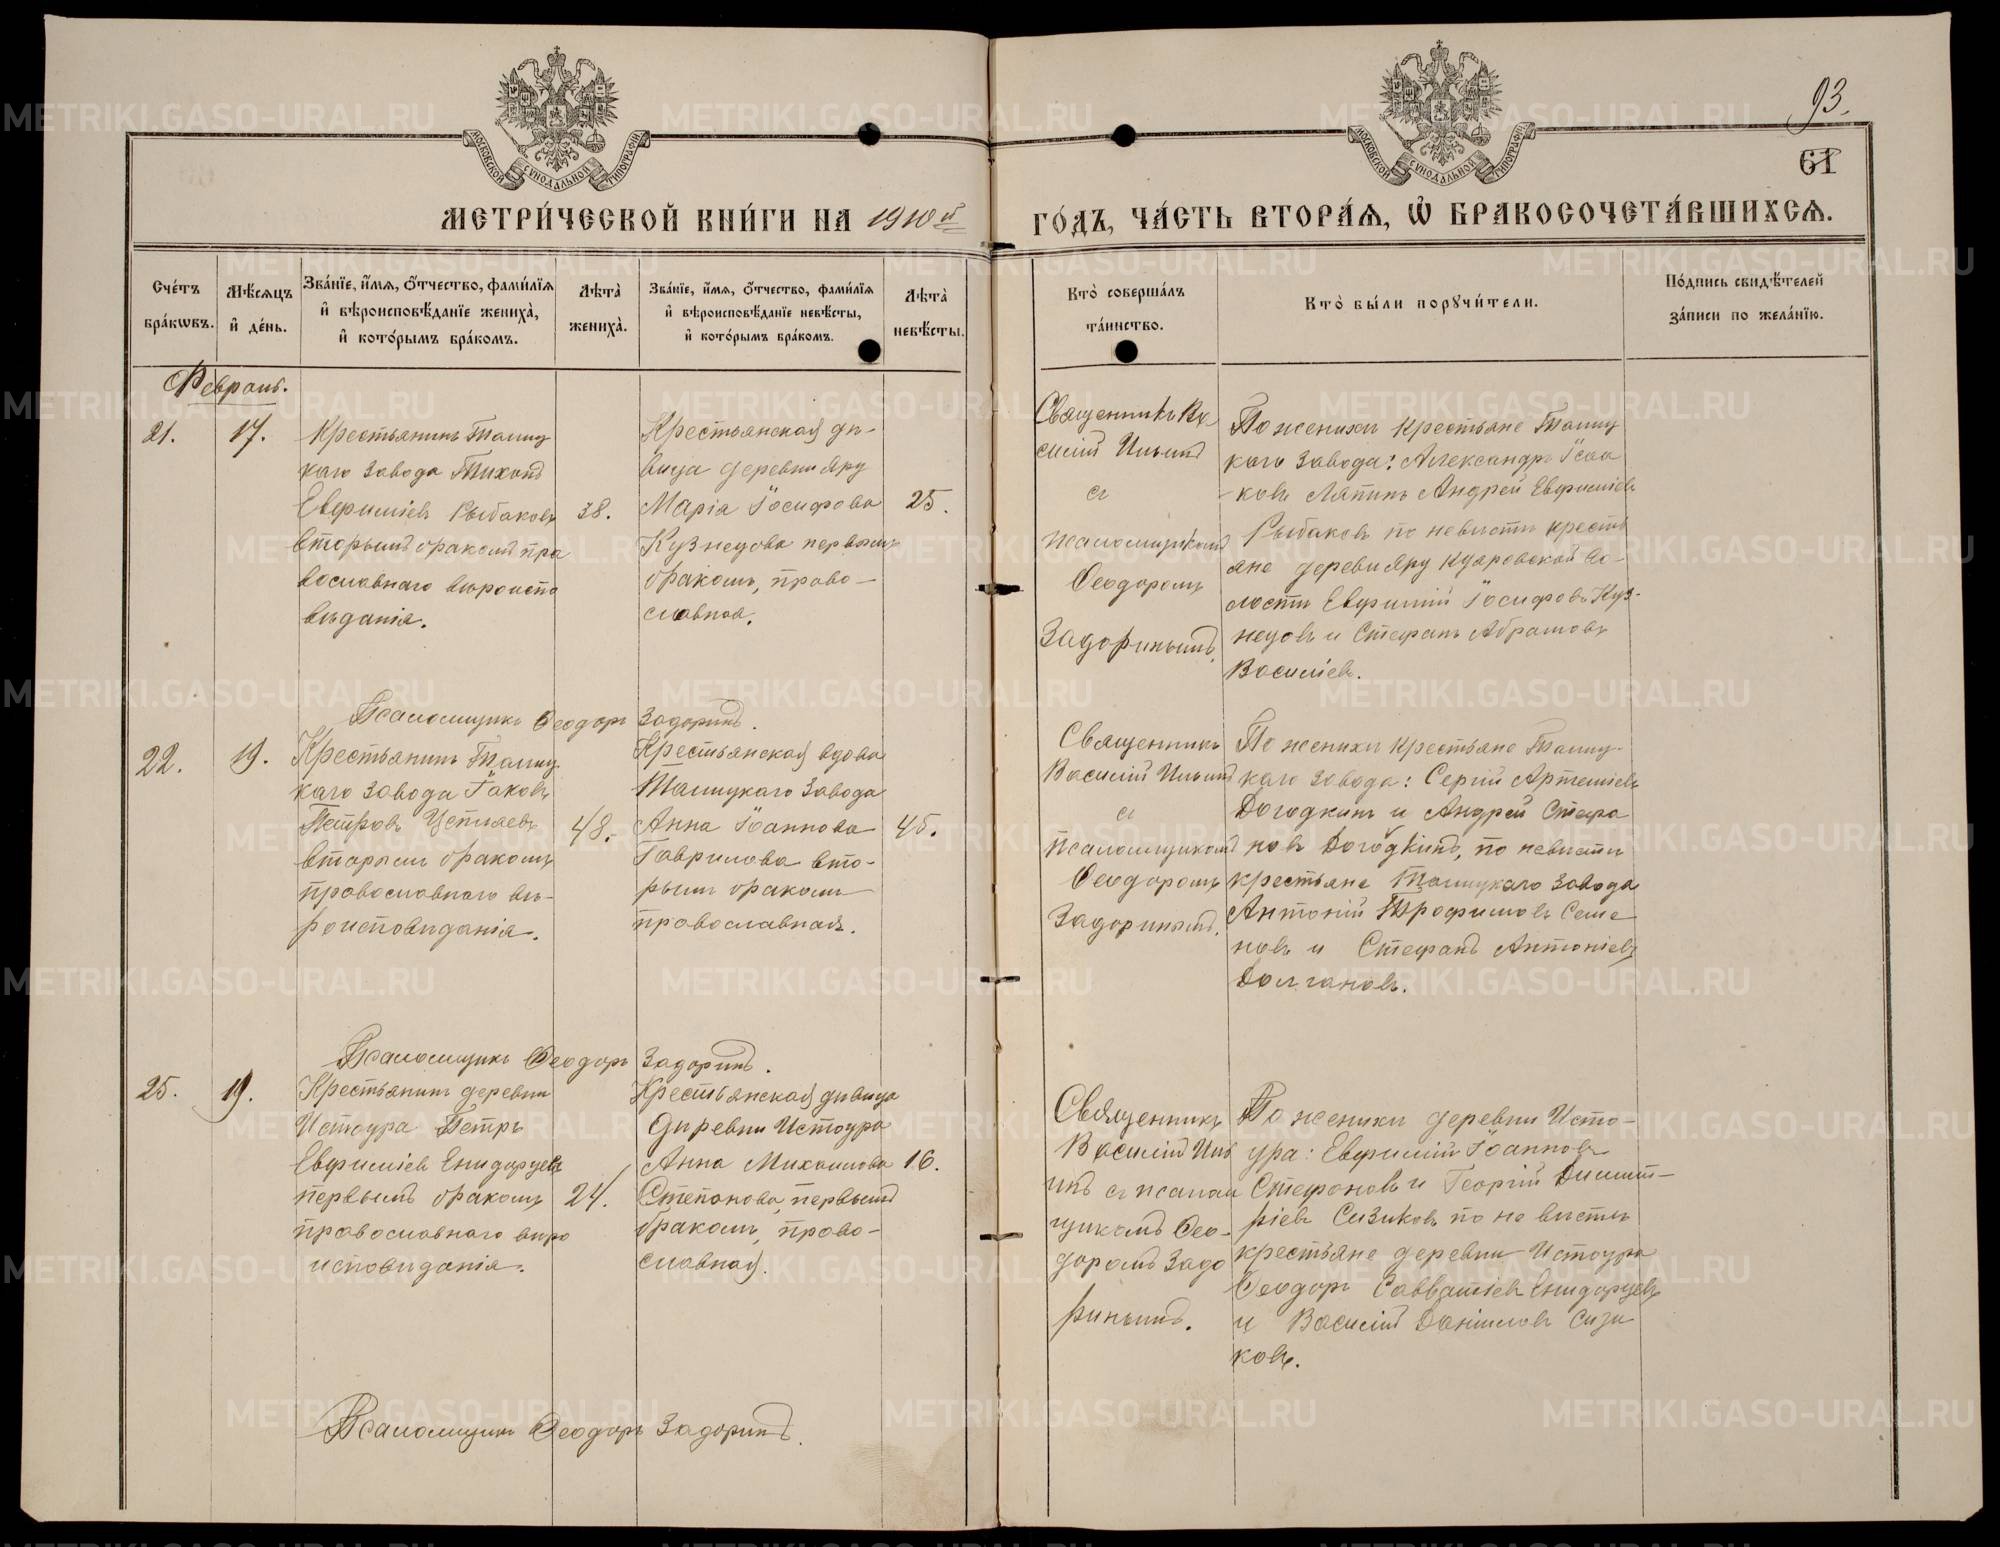 93.
61
МОСКОВСКОЙ СѴНОДАЛЬНОЙ ТИПОГРАФІИ
МОСКОВСКОЙ СѴНОДАЛЬНОЙ ТИПОГРАФІИ
МЕТРИ́ЧЕСКОЙ КНИ́ГИ НА 1910й ГО́ДЪ, ЧА́СТЬ ВТОРА́Я, Ѽ БРАКОСОЧЕТА́ВШИХСЯ.
Сче́тъ бра́кѡвъ.
Мѣ́сяцъ и҆ де́нь.
Зва́нїе, и҆́мя, ѻ҆́тчество, фами́лїя и҆ вѣроисповѣ́данїе жениха̀, и҆ кото́рымъ бра́комъ.
Лѣта̀ жениха̀.
Зва́нїе, и҆́мя, ѻ҆́тчество, фами́лїя и҆ вѣроисповѣ́данїе невѣ́сты, и҆ кото́рымъ бра́комъ.
Лѣта̀ невѣ́сты.
Кто̀ соверша́лъ та́инство.
Кто̀ бы́ли порꙋчи́тели.
По́дпись свидѣ́телей за́писи по жела́нїю.
Февраль.
21.
17.
Крестьянинъ Талиц
каго завода Тихонъ
Евфиміевъ Рыбаковъ
вторымъ бракомъ пра
вославнаго вѣроиспо
вѣданія.
38.
Крестьянская дѣ-
вица деревни Яру
Марія Іосифова
Кузнецова первымъ
бракомъ, право-
славная.
25.
Священникъ Ва
силій Ильинъ
съ
псаломщикомъ
Ѳеодоромъ
Задоринымъ.
По женихѣ крестьяне Талиц
каго завода: Александръ Исаа
ковъ Лапинъ Андрей Евфиміевъ
Рыбаковъ по невѣстѣ кресть
яне деревни Яру Куяровской во-
лости Евфимій Іосифовъ Куз-
нецовъ и Стефанъ Абрамовъ
Васильевъ.
Псаломщикъ Ѳеодоръ Задоринъ.
22.
19.
Крестьянинъ Талиц
каго завода Іаковъ
Петровъ
вторымъ бракомъ
православнаго вѣ-
роисповѣданія.
48.
Крестьянская вдова
Талицкаго завода
Анна Іоаннова
Гаврилова вто-
рымъ бракомъ
православная.
45.
Священникъ
Василій Ильинъ
съ
псаломщикомъ
Ѳеодоромъ
Задоринымъ.
По женихѣ крестьяне Талиц-
каго завода: Сергій Артеміевъ
Догодкинъ и Андрей Стефа
новъ Догодкинъ, по невѣстѣ
крестьяне Талицкаго завода
Антоній Трофимовъ Семе
новъ и Стефанъ Антоніевъ
Долгановъ.
Псаломщикъ Ѳеодоръ Задоринъ.
25.
19.
Крестьянинъ деревни
Истоура Петръ
Евфиміевъ Енидорцевъ
первымъ бракомъ
православнаго вѣро
исповѣданія.
24.
Крестьянская дѣвица
деревни Истоура
Анна Михаилова
Степанова, первымъ
бракомъ, право-
славная.
16.
Священникъ
Василій Иль
инъ съ псалом
щикомъ Ѳео-
доромъ Задо
ринымъ.
По женихѣ деревни Исто-
ура: Евфимій Іоанновъ
Стефановъ и Георгій Димит-
ріевъ Сизиковъ по невѣстѣ
крестьяне деревни Истоура
Ѳеодоръ Савватіевъ Енидорцевъ
и Василій Даніиловъ Сизи
ковъ.
Псаломщикъ Ѳеодоръ Задоринъ.
METRIKI.GASO-URAL.RU